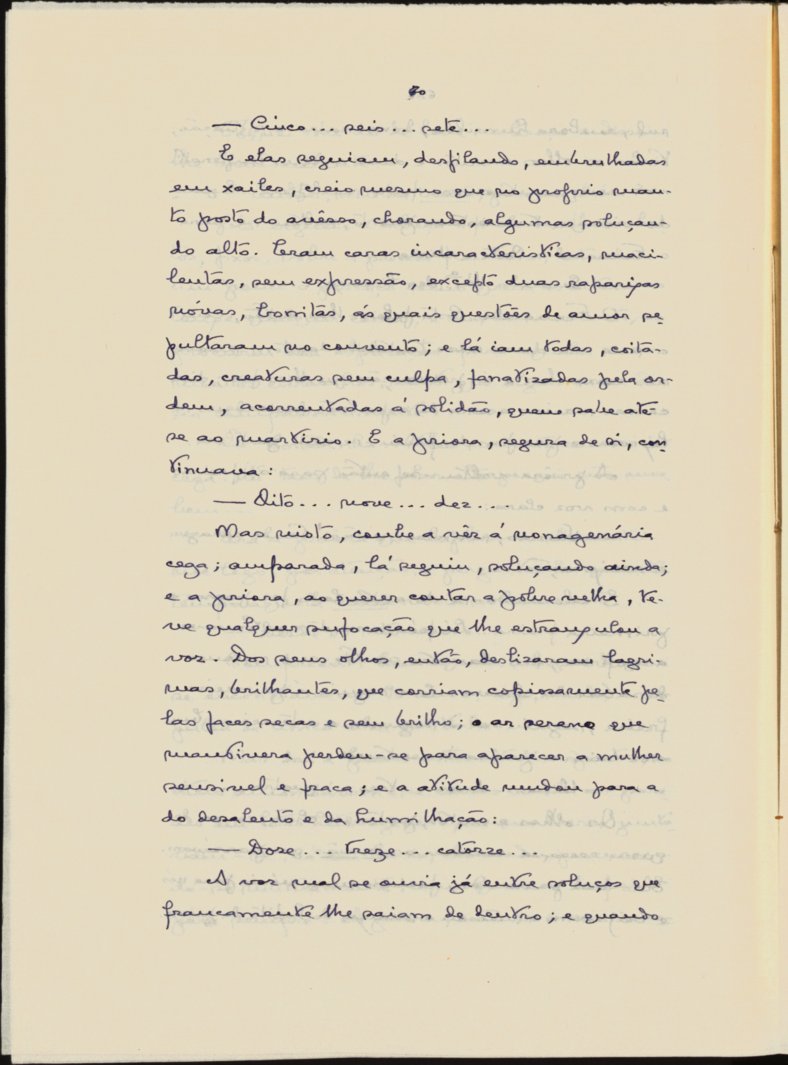 70
— Cinco... seis... sete...
E elas seguiam, desfilando, embrulhadas
em xailes, creio mesmo que no proprio man-
to posto do avêsso, chorando, algumas soluçan-
do alto. Eram caras incaracteristicas, maci-
lentas, sem expressão, excepto duas raparigas
nóvas, bonitas, ás quais questões de amor se-
pultaram no convento; e lá iam todas, coita-
das, creaturas sem culpa, fanatizadas pela or-
dem, acorrentadas á solidão, quem sabe até-
se ao martirio. E a priora, segura de si, con-
tinuava:
— Oito... nove... dez...
Mas nisto, coube a vêz á nonagenária
cega; amparada, lá seguiu, soluçando ainda;
e a priora, ao querer contar a pobre velha, te-
ve qualquer sufocação que lhe estrangulou a
voz. Dos seus olhos, então, deslizaram lagri-
mas, brilhantes, que corriam copiosamente pe-
las faces secas e sem brilho; o ar sereno que
mantivera perdeu-se para aparecer a mulher
sensivel e fraca; e a atitude mudou para a
do desalento e da humilhação:
— Doze... treze... catorze...
A voz mal se ouvia já entre soluços que
francamente lhe saiam de dentro; e quando